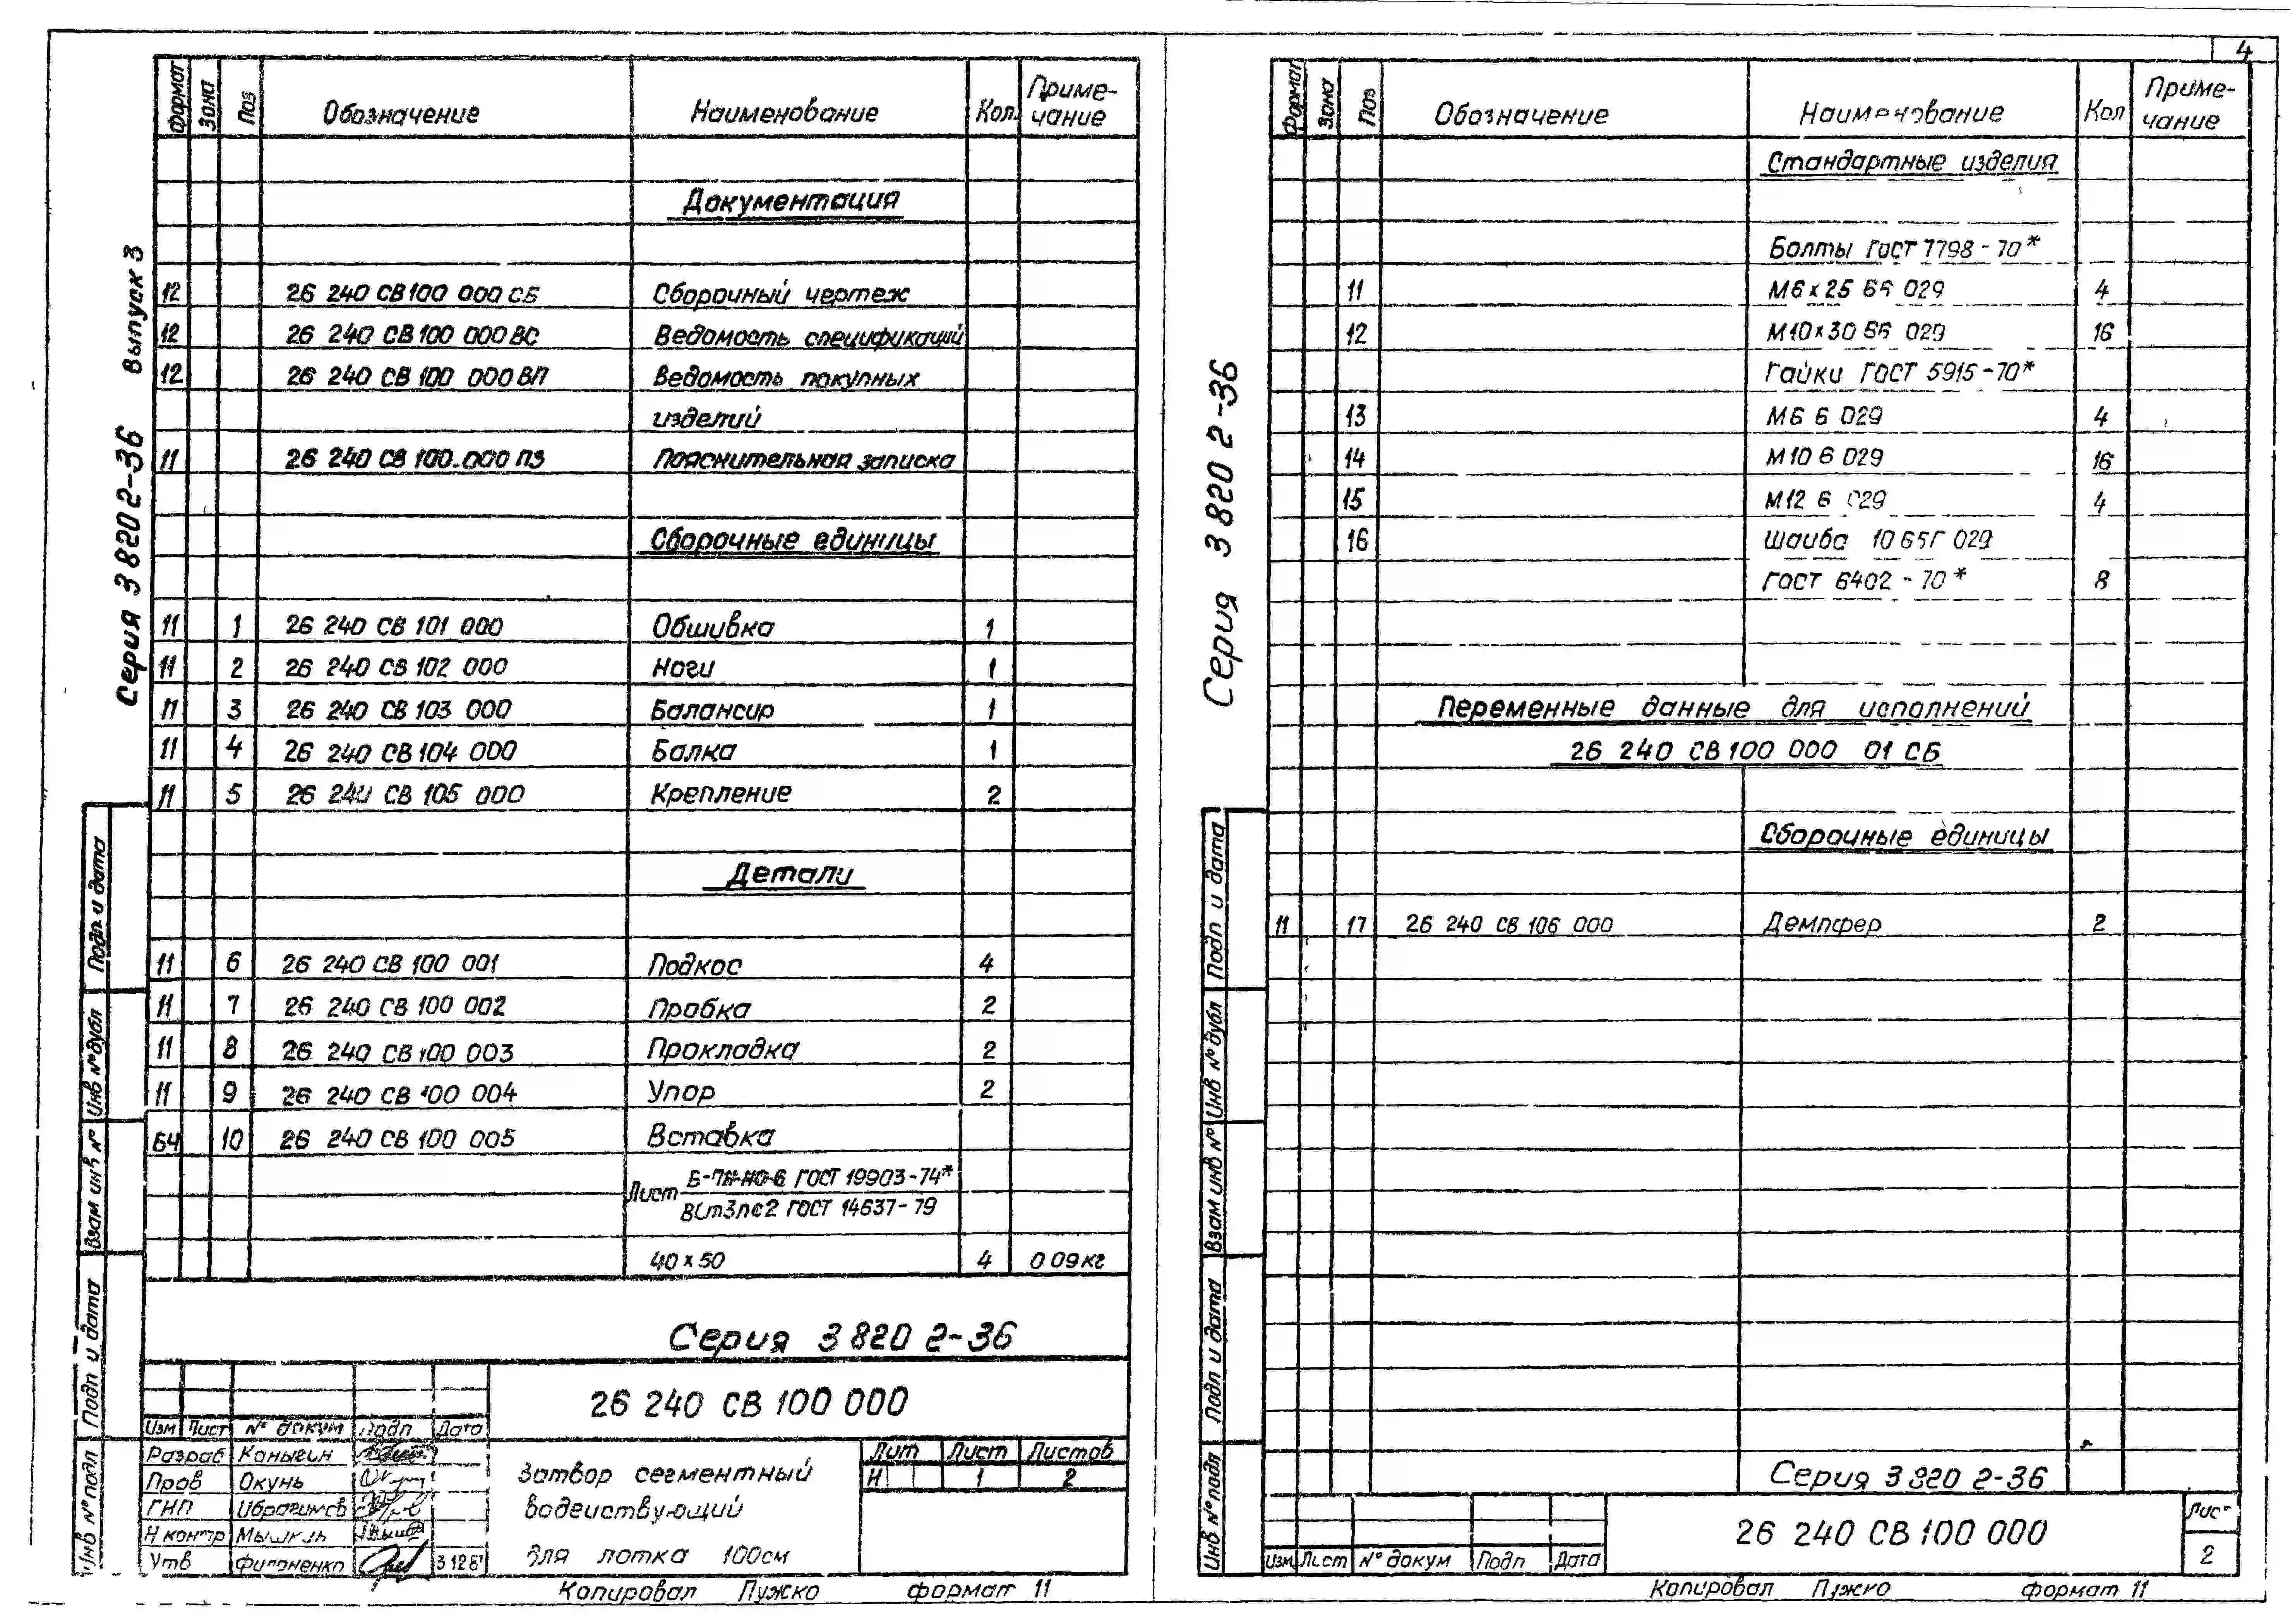 4
Серия 3 820 2-36 Выпуск 3
Формат Зона Поз Обозначение Наименование Кол. Приме-
чание
Документация
12 26 240 СВ 100 000 СБ Сборочный чертеж
12 26 240 СВ 100 000 ВС Ведомость спецификаций
12 26 240 СВ 100 000 ВП Ведомость покупных
изделий
11 26 240 СВ 100.000 ПЗ Пояснительная записка
Сборочные единицы
11 1 26 240 СВ 101 000 Обшивка 1
11 2 26 240 СВ 102 000 Ноги 1
11 3 26 240 СВ 103 000 Балансир 1
11 4 26 240 СВ 104 000 Балка 1
11 5 26 240 СВ 105 000 Крепление 2
Детали
11 6 26 240 СВ 100 001 Подкос 4
11 7 26 240 СВ 100 002 Пробка 2
11 8 26 240 СВ 100 003 Прокладка 2
11 9 26 240 СВ 100 004 Упор 2
БЧ 10 26 240 СВ 100 005 Вставка
Лист Б-ПН-НО-6 ГОСТ 19903-74*
ВСт3пс2 ГОСТ 14637-79
40 х 50 4 0 09кг
Серия 3 820 2-36
26 240 СВ 100 000
Изм Лист № докум Подп Дата
Разраб Каныгин
Пров Окунь
ГИП Ибрагимов
Н контр
Утв
Затвор сегментный
водействующий
для лотка 100см
Лит Лист Листов
И 1 2
Подп. и дата
Инв № дубл
Взам инв №
Подп и дата
Инв № подл
Копировал Пужко формат 11
Серия 3 820 2-36
Формат Зона Поз Обозначение Наименование Кол Приме-
чание
Стандартные изделия
Болты ГОСТ 7798-70*
11 М6 х 25 66 029 4
12 М10 х 30 66 029 16
Гайки ГОСТ 5915-70*
13 М6 6 029 4
14 М10 6 029 16
15 М12 6 029 4
16 Шайба 10 65Г 029
ГОСТ 6402-70* 8
Переменные данные для исполнений
26 240 СВ 100 000 01 СБ
Сборочные единицы
11 17 26 240 СВ 106 000 Демпфер 2
Подп и дата
Инв № дубл
Взам инв №
Подп и дата
Инв № подл
Серия 3 820 2-36
26 240 СВ 100 000
Изм Лист № докум Подп Дата
Лист
2
Копировал Пужко формат 11